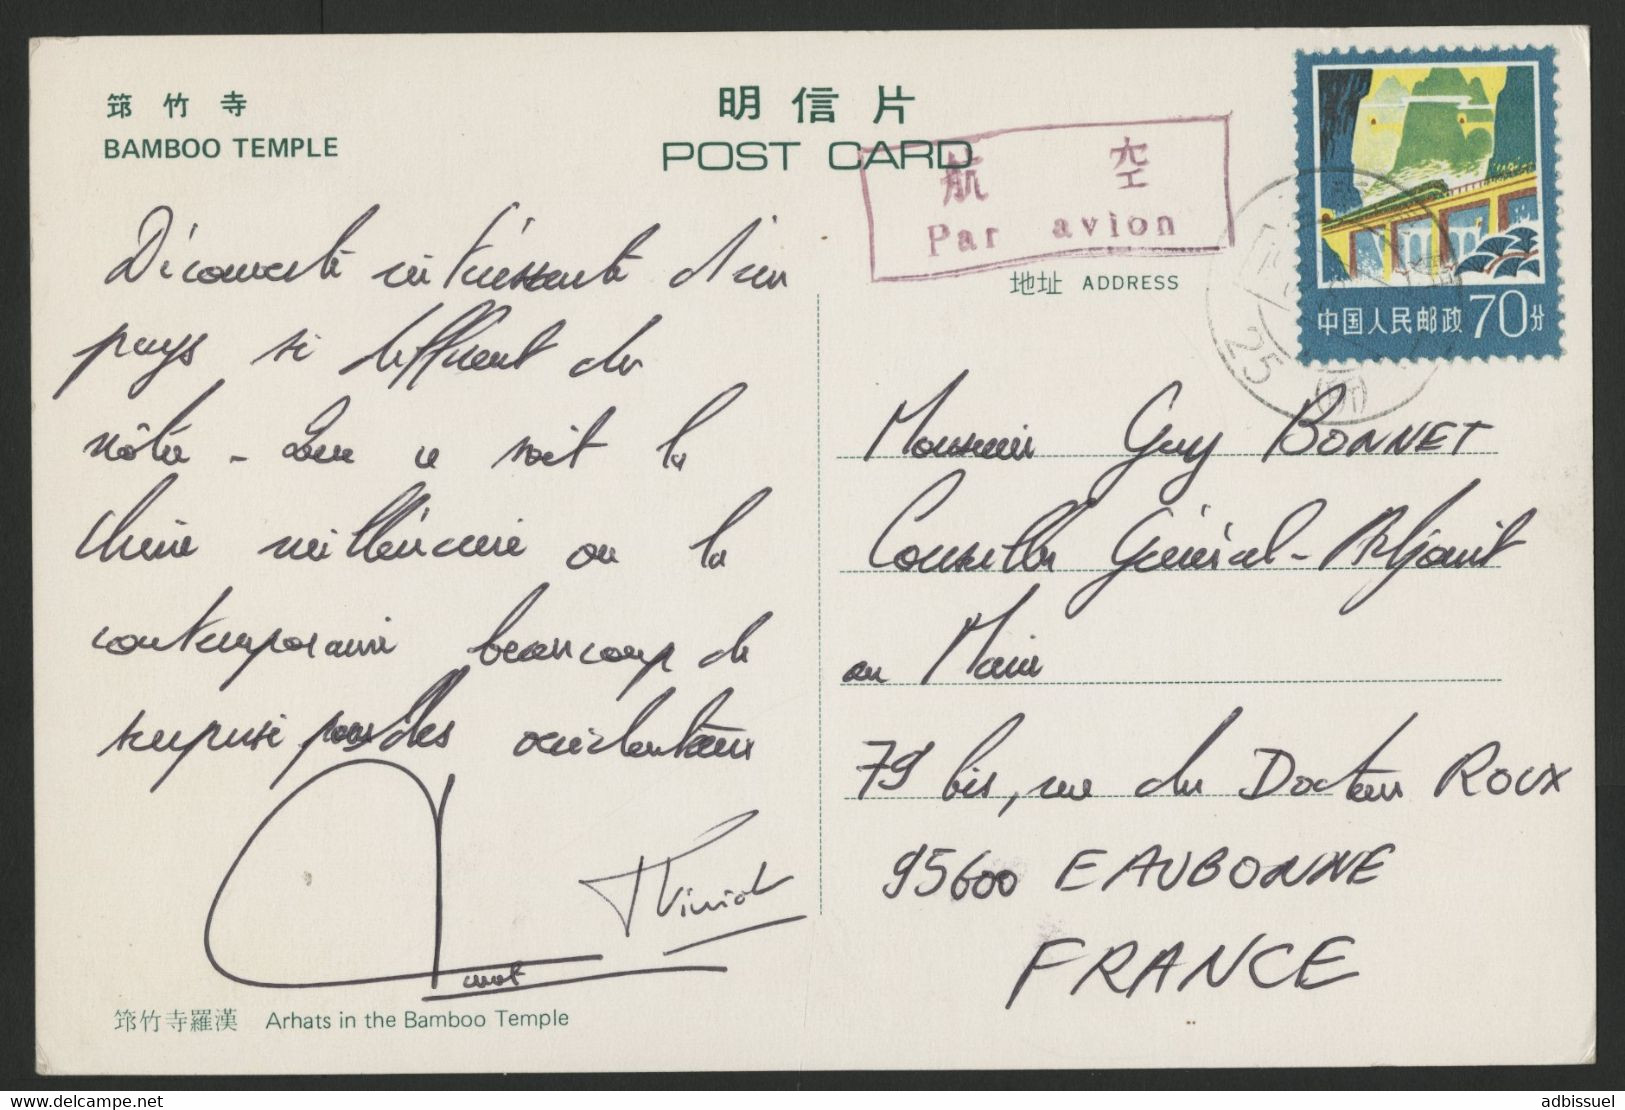 筇竹寺
BAMBOO TEMPLE
明信片
POST CARD
航空
Par avion
中国人民邮政 70分
25
地址 ADDRESS
Découverte intéressante d'un
pays si différent du
nôtre - Que ce soit la
Chine millénaire ou la
contemporaine beaucoup de
surprise pour des occidentaux
Monsieur Guy BONNET
Conseiller Général - Adjoint
au Maire
79 bis, rue du Docteur ROUX
95600 EAUBONNE
FRANCE
筇竹寺羅漢 Arhats in the Bamboo Temple
delcampe.net
adbissuel